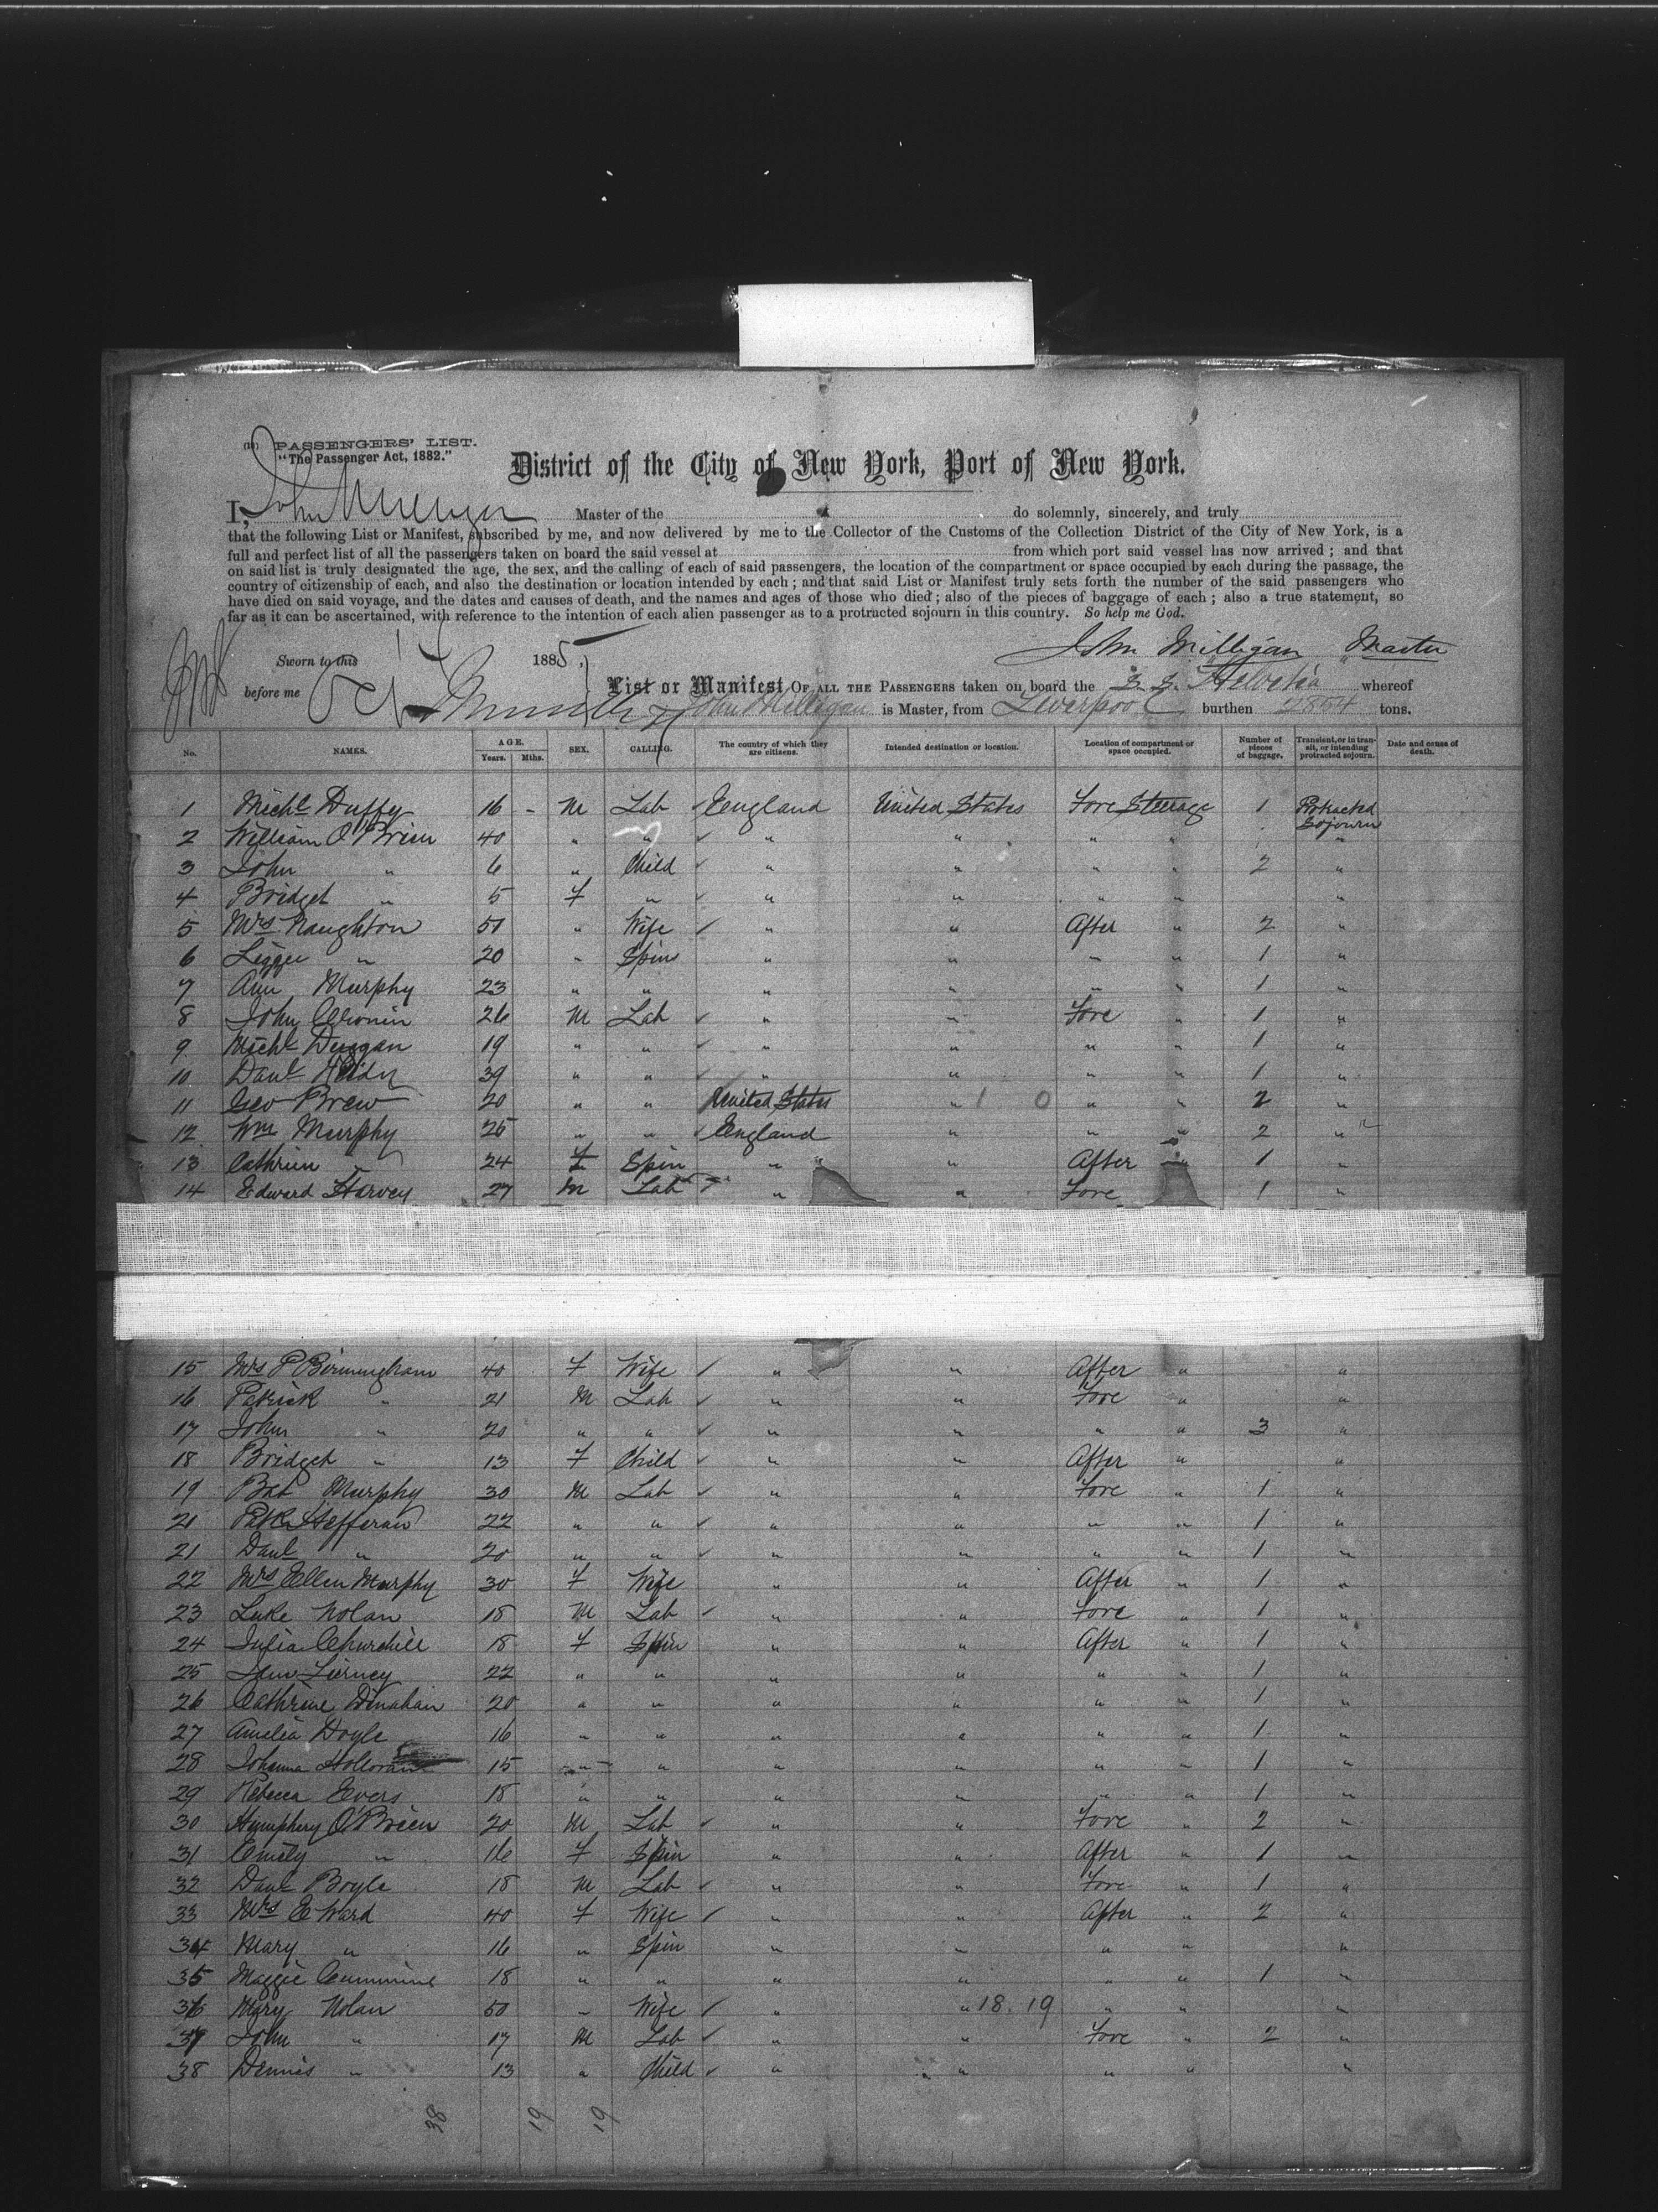 (18) PASSENGERS' LIST.
"The Passenger Act, 1882."
District of the City of New York, Port of New York.
I, John Milligan Master of the do solemnly, sincerely, and truly
that the following List or Manifest, subscribed by me, and now delivered by me to the Collector of the Customs of the Collection District of the City of New York, is a
full and perfect list of all the passengers taken on board the said vessel at from which port said vessel has now arrived; and that
on said list is truly designated the age, the sex, and the calling of each of said passengers, the location of the compartment or space occupied by each during the passage, the
country of citizenship of each, and also the destination or location intended by each; and that said List or Manifest truly sets forth the number of the said passengers who
have died on said voyage, and the dates and causes of death, and the names and ages of those who died; also of the pieces of baggage of each; also a true statement, so
far as it can be ascertained, with reference to the intention of each alien passenger as to a protracted sojourn in this country. So help me God.
John Milligan Master
Sworn to this 14 1885.
before me Oct
List or Manifest OF ALL THE PASSENGERS taken on board the S. S. Helvetia whereof
John Milligan is Master, from Liverpool burthen tons.
No. NAMES. AGE. Years. Mths. SEX. CALLING. The country of which they are citizens. Intended destination or location. Location of compartment or space occupied. Number of pieces of baggage. Transient, or in transit, or intending protracted sojourn. Date and cause of death.
1 Michl Duffy 16 - M Lab England United States Fore Steerage 1 Protracted Sojourn
2 William O'Brien 40 " " " " " " "
3 John " 6 " Child " " " " 2 "
4 Bridget " 5 F " " " " " "
5 Mrs Naughton 50 " Wife " " After " 2 "
6 Lizzie " 20 " Spins " " " " 1 "
7 Ann Murphy 23 " " " " " " 1 "
8 John Cronin 26 M Lab " " Fore " 1 "
9 Michl Duggan 19 " " " " " " 1 "
10 Danl 39 " " " " " " 1 "
11 Geo Brew 20 " " United States " 1 0 " " 2 "
12 Wm Murphy 25 " " England " " " 2 "
13 Cathrien " 24 F Spin " " After " 1 "
14 Edward Harvey 27 M Lab " " Fore 1 "
15 Mrs P Birmingham 40 F Wife " " After " "
16 Patrick " 21 M Lab " " Fore " "
17 John " 20 " " " " " " 3 "
18 Bridget " 13 F Child " " After " "
19 Pat Murphy 30 M Lab " " Fore " 1 "
21 Patk Hefferan 22 " " " " " " 1 "
21 Danl " 20 " " " " " " 1 "
22 Mrs Ellen Murphy 30 F Wife " " After " 1 "
23 Luke Nolan 18 M Lab " " Fore " 1 "
24 Julia Churchill 18 F Spin " " After " 1 "
25 Tierney 22 " " " " " " 1 "
26 Cathrine Dinahan 20 " " " " " " 1 "
27 Amelia Doyle 16 " " " " " " 1 "
28 Johanna Holloran 15 " " " " " " 1 "
29 Rebecca Evers 18 " " " " " " 1 "
30 Humphery O'Brien 20 M Lab " " Fore " 2 "
31 Emily " 16 F Spin " " After " 1 "
32 Danl Boyle 18 M Lab " " Fore " 1 "
33 Mrs E Ward 40 F Wife " " After " 2 "
34 Mary " 16 " Spin " " " " "
35 Maggie Cummins 18 " " " " " " 1 "
36 Mary Nolan 50 " Wife " " 18. 19 " " "
37 John " 17 M Lab " " Fore " 2 "
38 Dennis " 13 " Child " " " " "
38 19 19